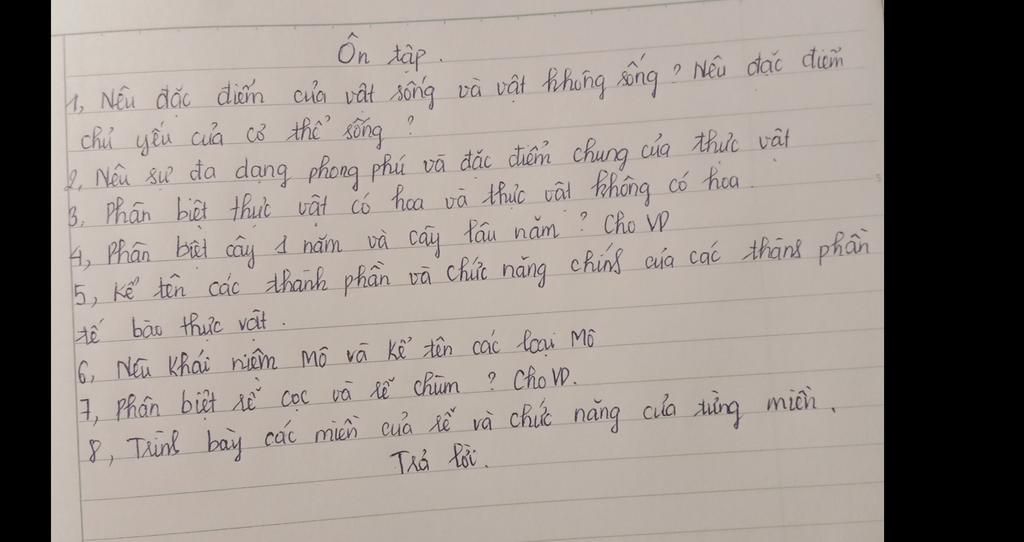 Ôn tập.
1, Nêu đặc điểm của vật sống và vật không sống? Nêu đặc điểm
chủ yếu của cơ thể sống?
2, Nêu sự đa dạng phong phú và đặc điểm chung của thực vật
3, Phân biệt thực vật có hoa và thực vật không có hoa.
4, Phân biệt cây 1 năm và cây lâu năm? Cho VD
5, Kể tên các thành phần và chức năng chính của các thành phần
tế bào thực vật.
6, Nêu khái niệm Mô và kể tên các loại Mô
7, Phân biệt rễ cọc và rễ chùm? Cho VD.
8, Trình bày các miền của rễ và chức năng của từng miền.
Trả lời.